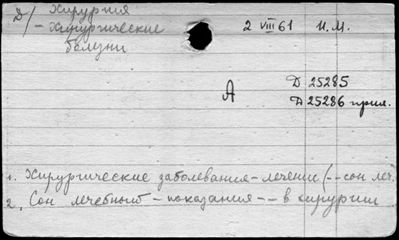 Д/ Хирургия
- Хирургические
болезни
2 VIII 61 И.М.
А
Д 25285
Д 25286 прил.
1. Хирургические заболевания - лечение (-- сон леч.
2. Сон лечебный - показания -- в хирургии